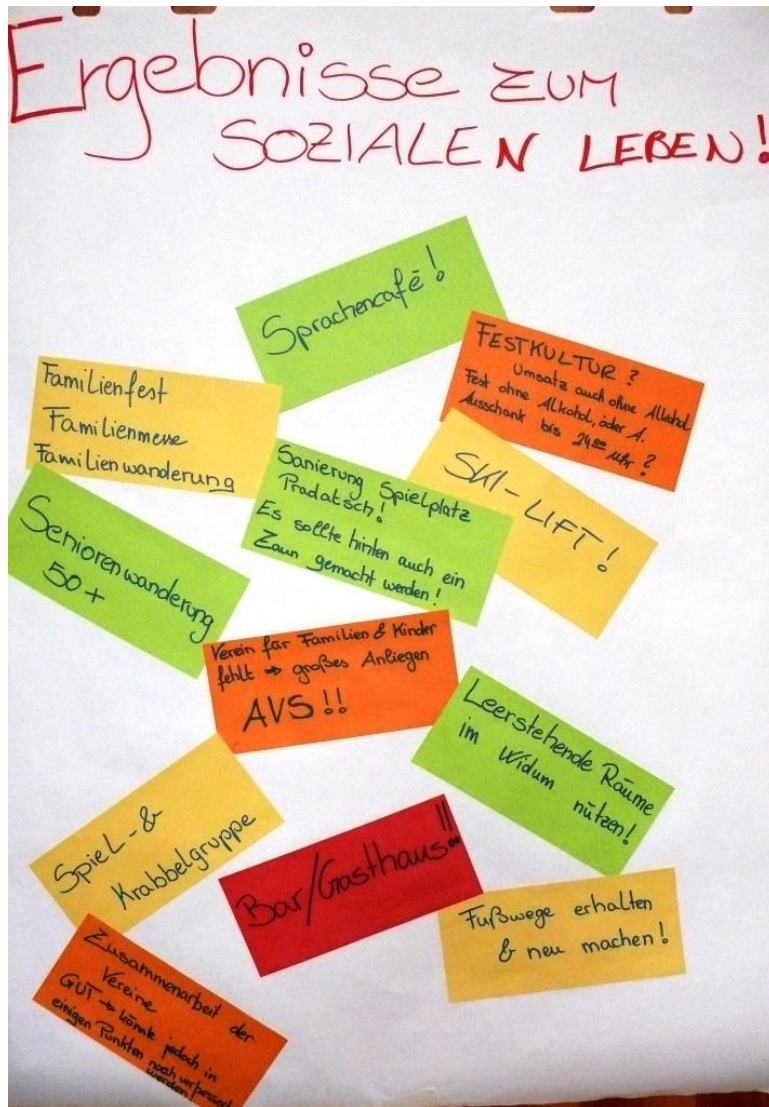 Ergebnisse zum
SOZIALEN LEBEN!
Sprachencafé!
FESTKULTUR?
Umsatz auch ohne Alkohol
Fest ohne Alkohol, oder A.
Ausschank bis 24⁰⁰ Uhr?
Familienfest
Familienmesse
Familienwanderung
Sanierung Spielplatz
Pradatsch!
Es sollte hinten auch ein
Zaun gemacht werden!
SKI-LIFT!
Seniorenwanderung
50+
Verein für Familien & Kinder
fehlt → großes Anliegen
AVS!!
Leerstehende Räume
im Widum
nützen!
Spiel- &
Krabbelgruppe
Bar/Gasthaus!!
Fußwege erhalten
& neu machen!
Zusammenarbeit der
Vereine
GUT → könnte jedoch in
einigen Punkten noch verbessert
werden!